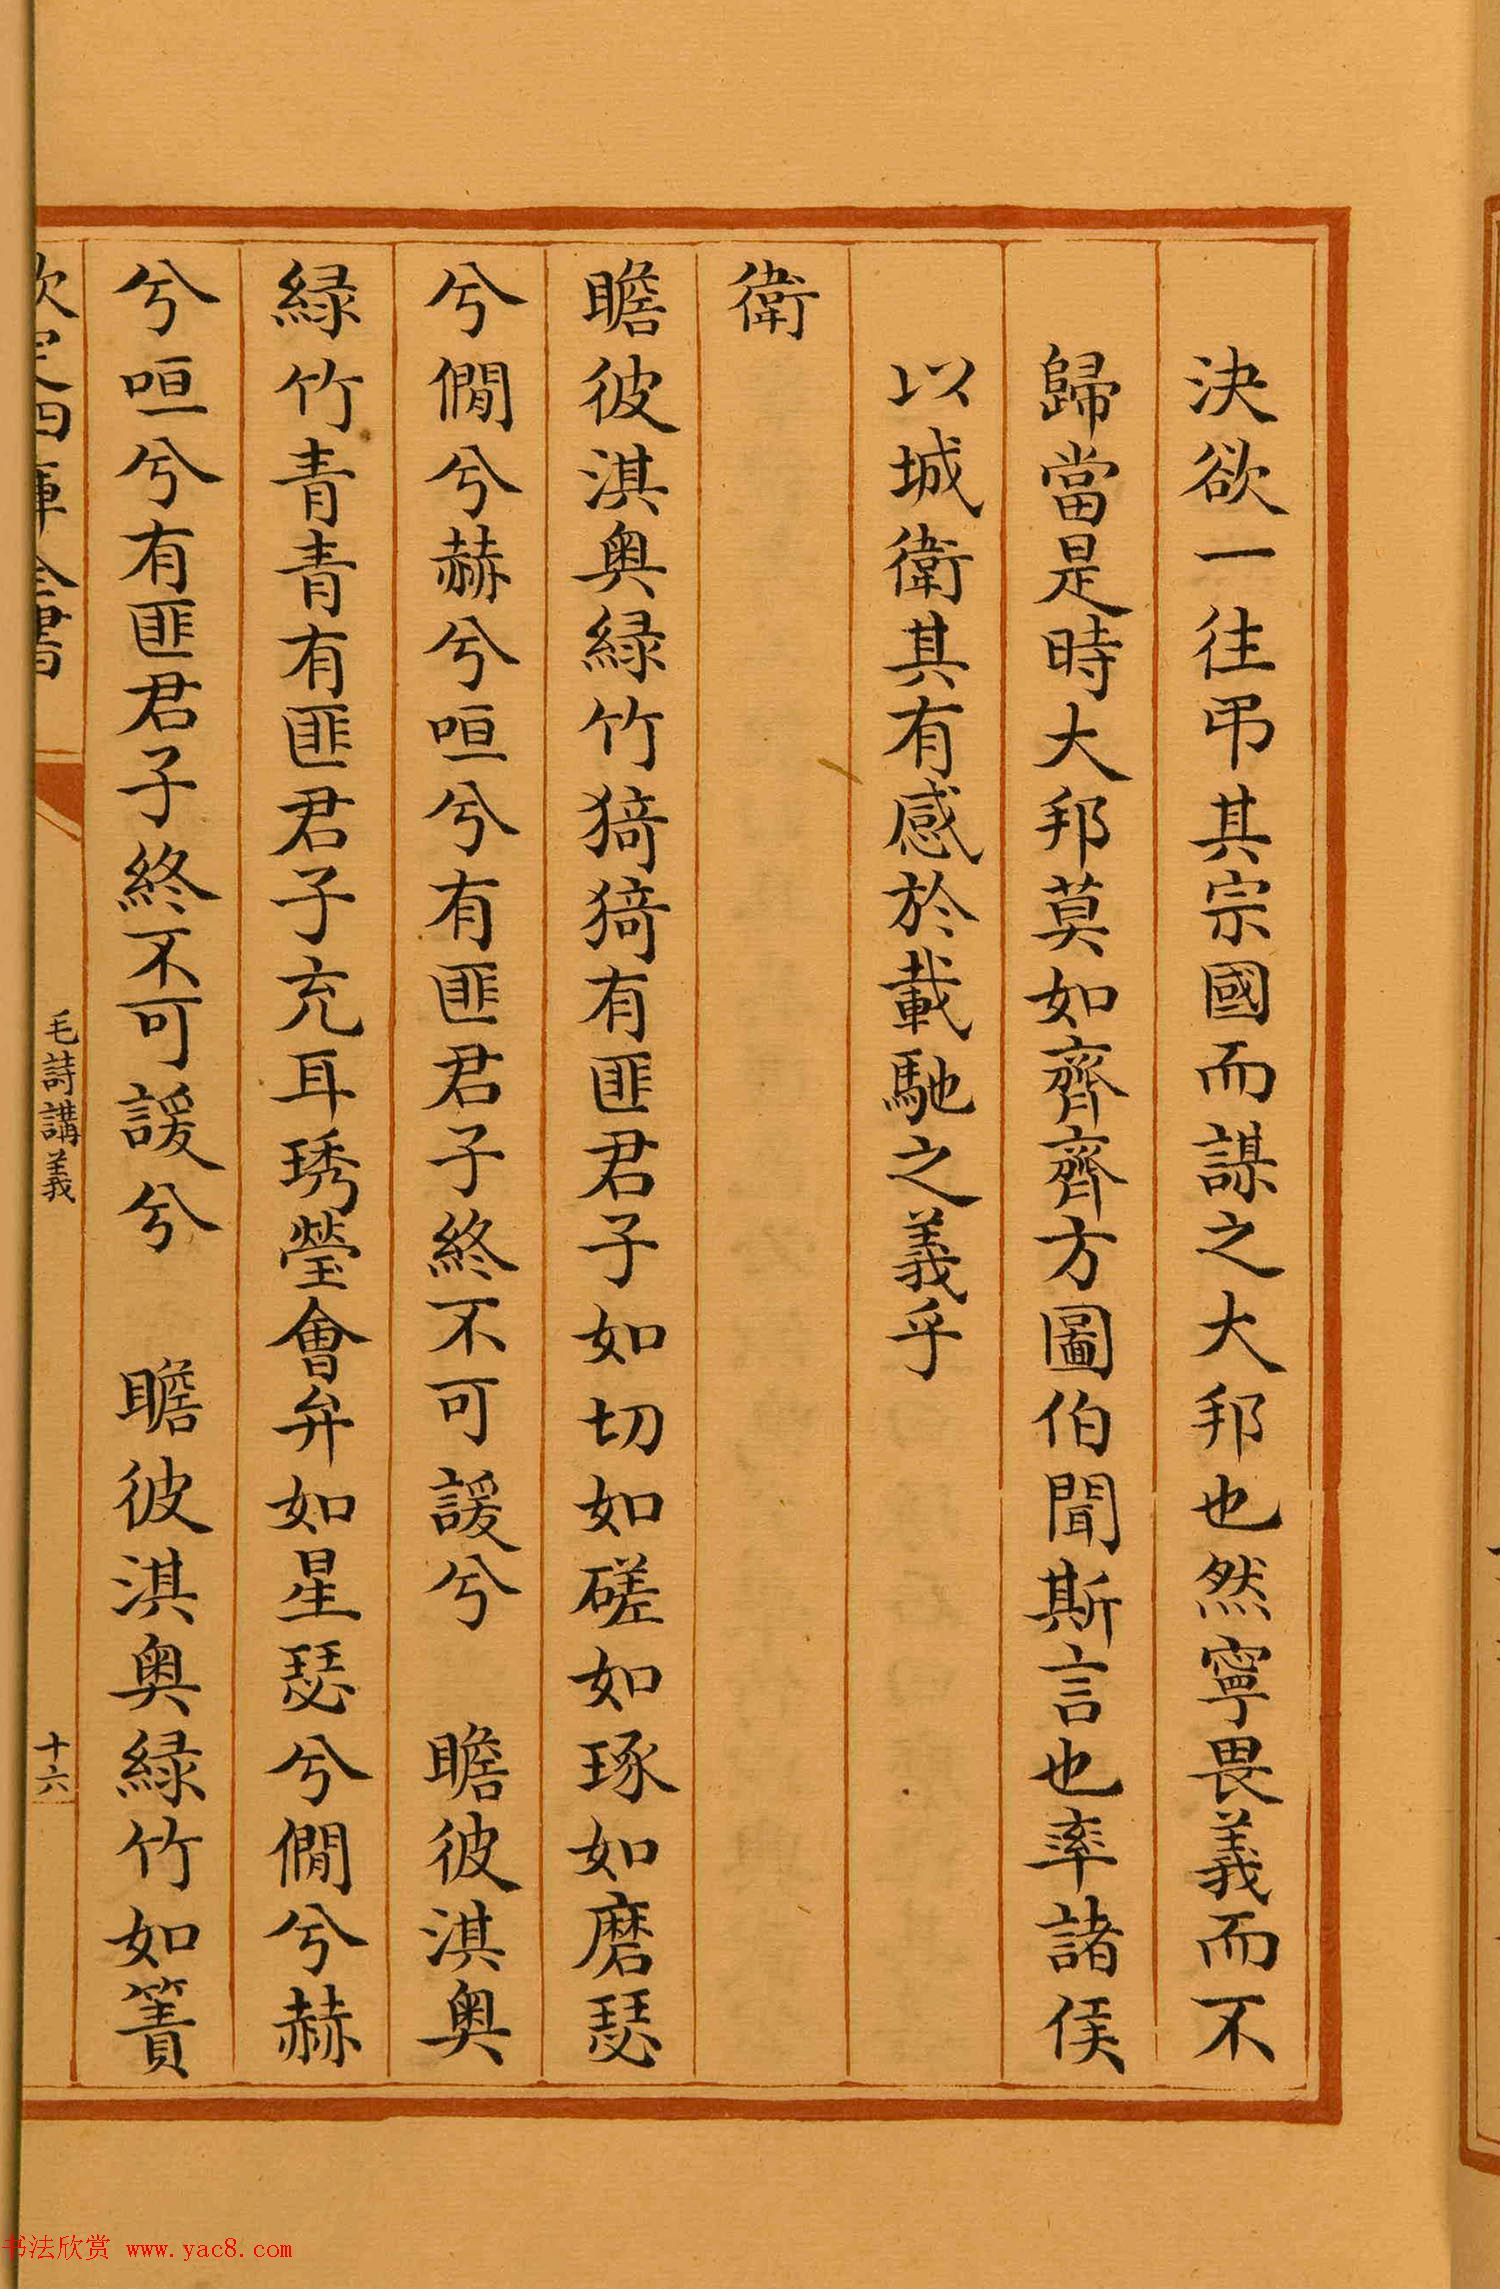 決欲一往弔其宗國而謀之大邦也然寧畏義而不
歸當是時大邦莫如齊齊方圖伯聞斯言也率諸侯
以城衛其有感於載馳之義乎
衛
瞻彼淇奧緑竹猗猗有匪君子如切如磋如琢如磨瑟
兮僴兮赫兮咺兮有匪君子終不可諼兮　瞻彼淇奧
緑竹青青有匪君子充耳琇瑩會弁如星瑟兮僴兮赫
兮咺兮有匪君子終不可諼兮　瞻彼淇奧緑竹如簀
欽定四庫全書
毛詩講義
十六
书法欣赏 www.yac8.com